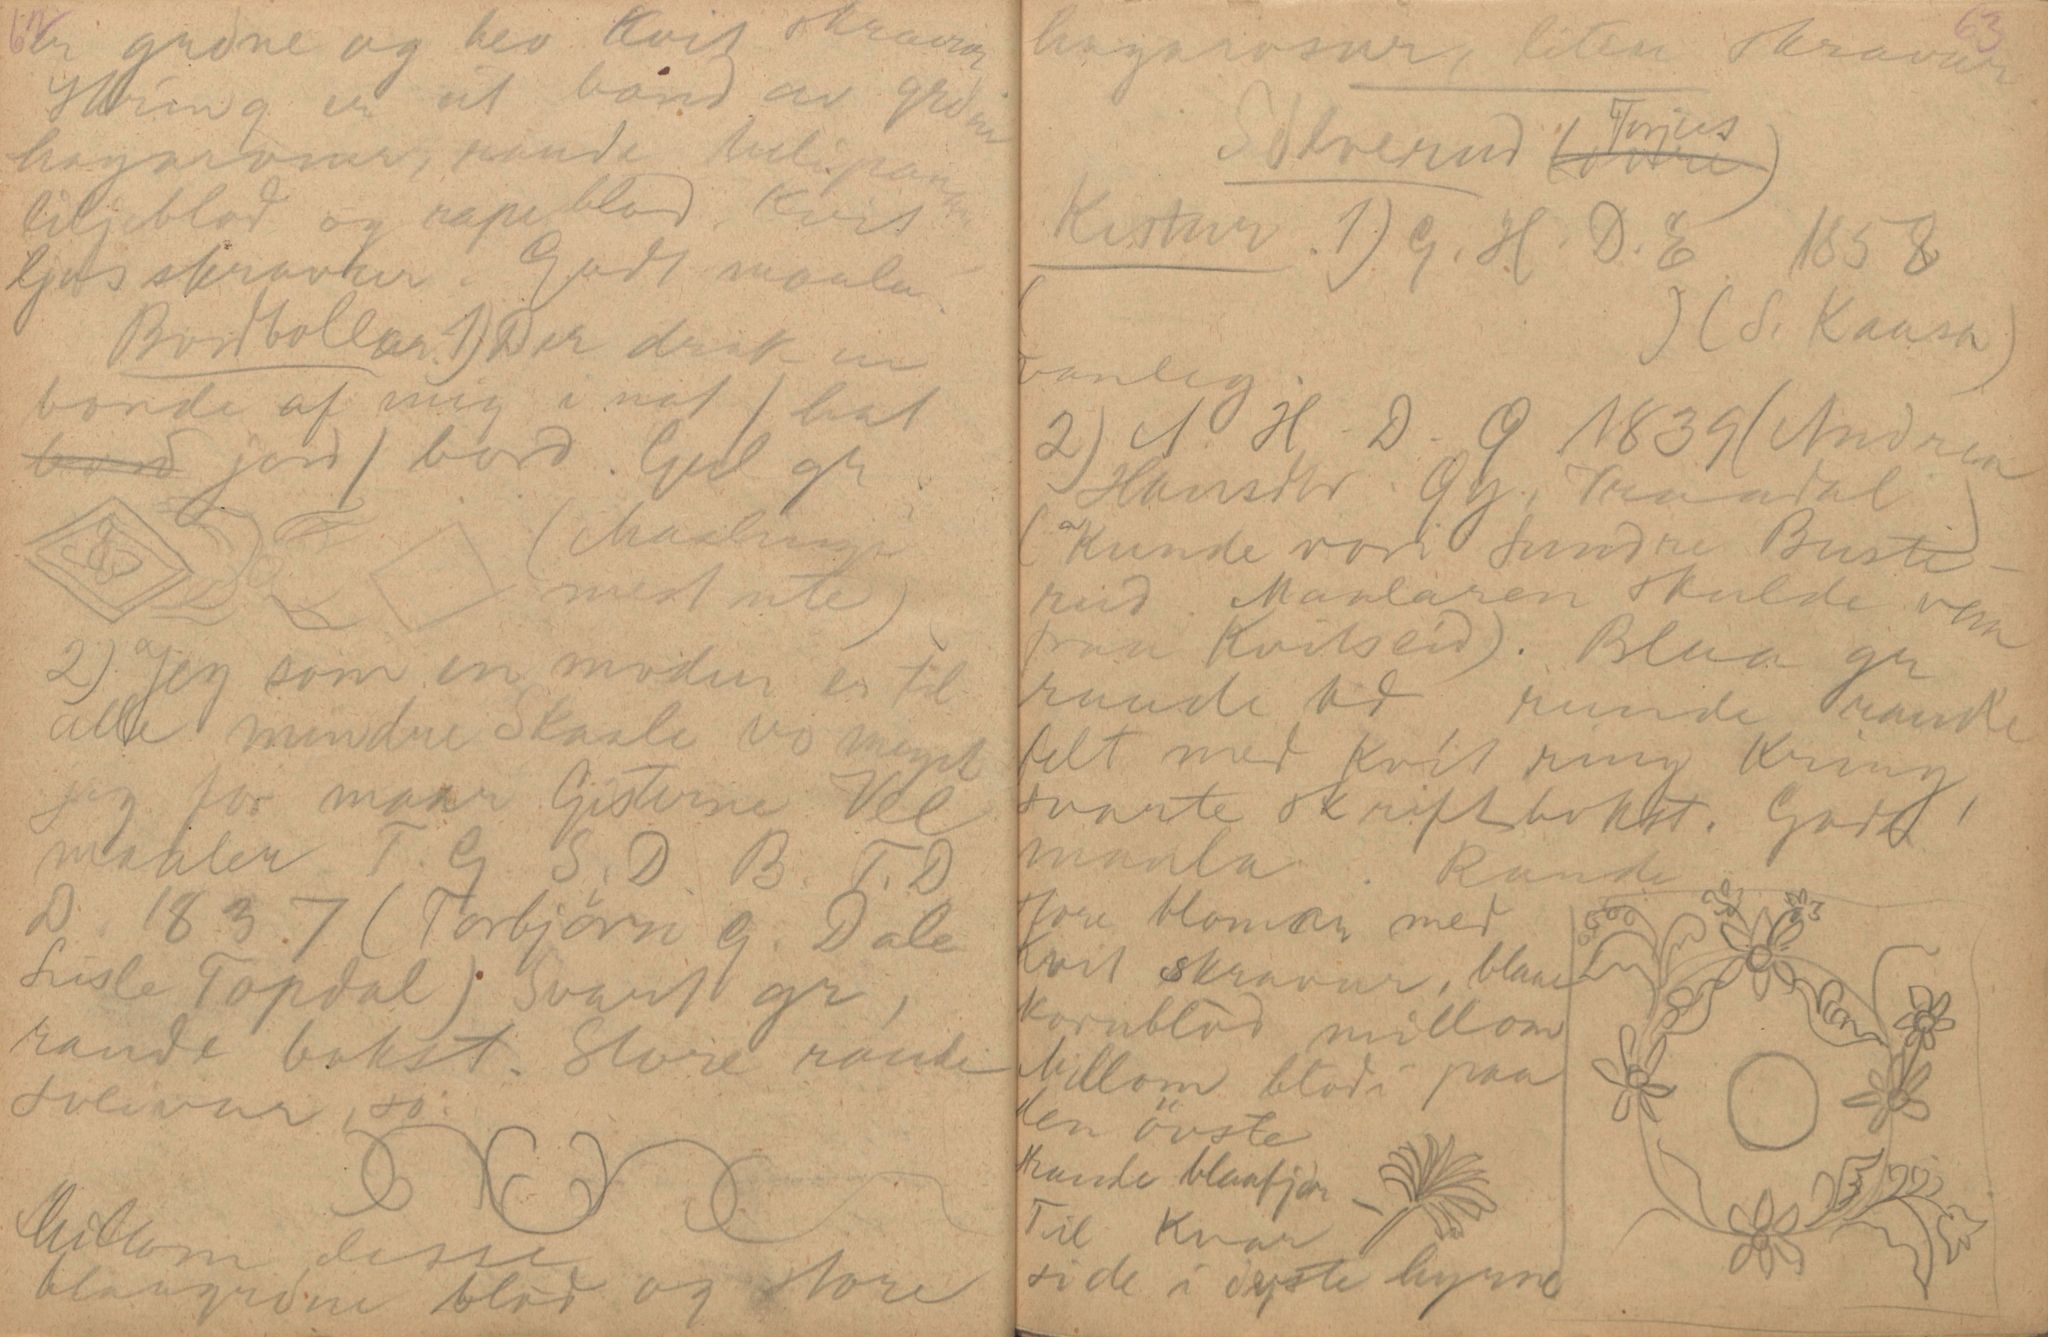 62
er gröne og hev kvit skravur
Kring er eit band av gröne
hagarosur, raude tulipanar
liljeblad og rapeblad. Kvit
ljos skravur. Godt maala.
Bordbollar. 1) Der drak en
bonde af mig i nat / hat
bord jord / bord. Gul gr
(Maalingi
mest ute)
2) "Jeg som en moder er til
alle mindre Skaale vo meget
jeg for maar Gisterne Vel
maaler T. G. S. D. B. T. D
D. 1837 (Torbjörn G. Dale
Sisle Topdal) Svart gr,
raude bokst. Store raude
so:
Millom desse
blaagröne blöd og store
63
hagarosur, liten skravur
Sölverud (Torjus
)
Kistur. 1) G. H. D. E 1858
( ) (S. Kaasa)
vanleg.
2) A. H. D. Q 1839 (Andrea
Hansdtr. Qy, Traadal)
(Kunde vori Sundre Buste-
rud. Maalaren skulde vera
fraa Kvitseid). Blaa gr
raude runde raude
felt med kvit ring kring,
svarte skriftbokst. Godt
maala. Raude
store blomar med
kvit skravur, blaae
kornblöd millom
Millom blodi paa
den övste
raude blaafjör
Til kvar
side i övste hyrno